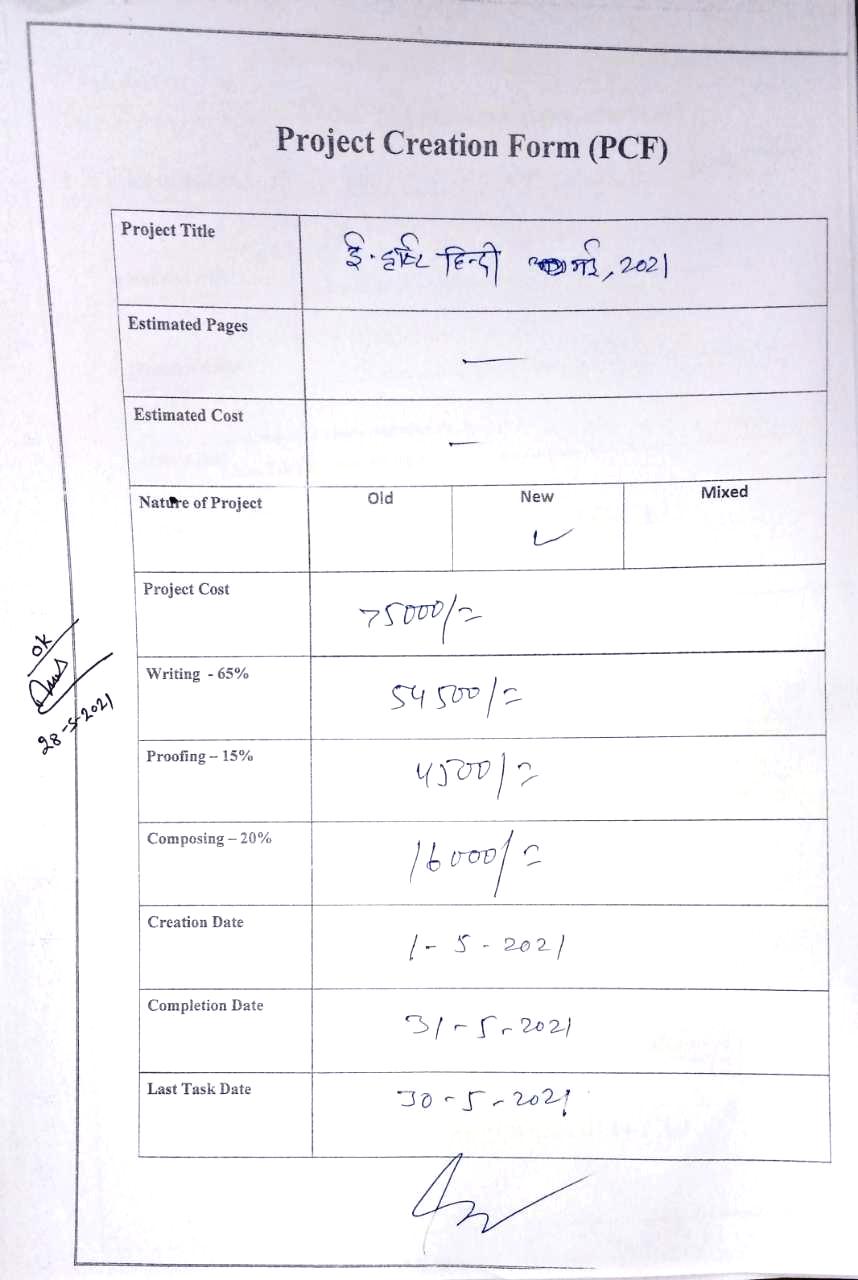 Project Creation Form (PCF)
Project Title
ई-दृष्टि हिन्दी मई, 2021
Estimated Pages —
Estimated Cost —
Nature of Project Old New Mixed
✓
Project Cost 75000/=
Writing - 65% 54500/=
Proofing – 15% 4500/=
Composing – 20% 16000/=
Creation Date 1-5-2021
Completion Date 31-5-2021
Last Task Date 30-5-2021
OK
28-5-2021